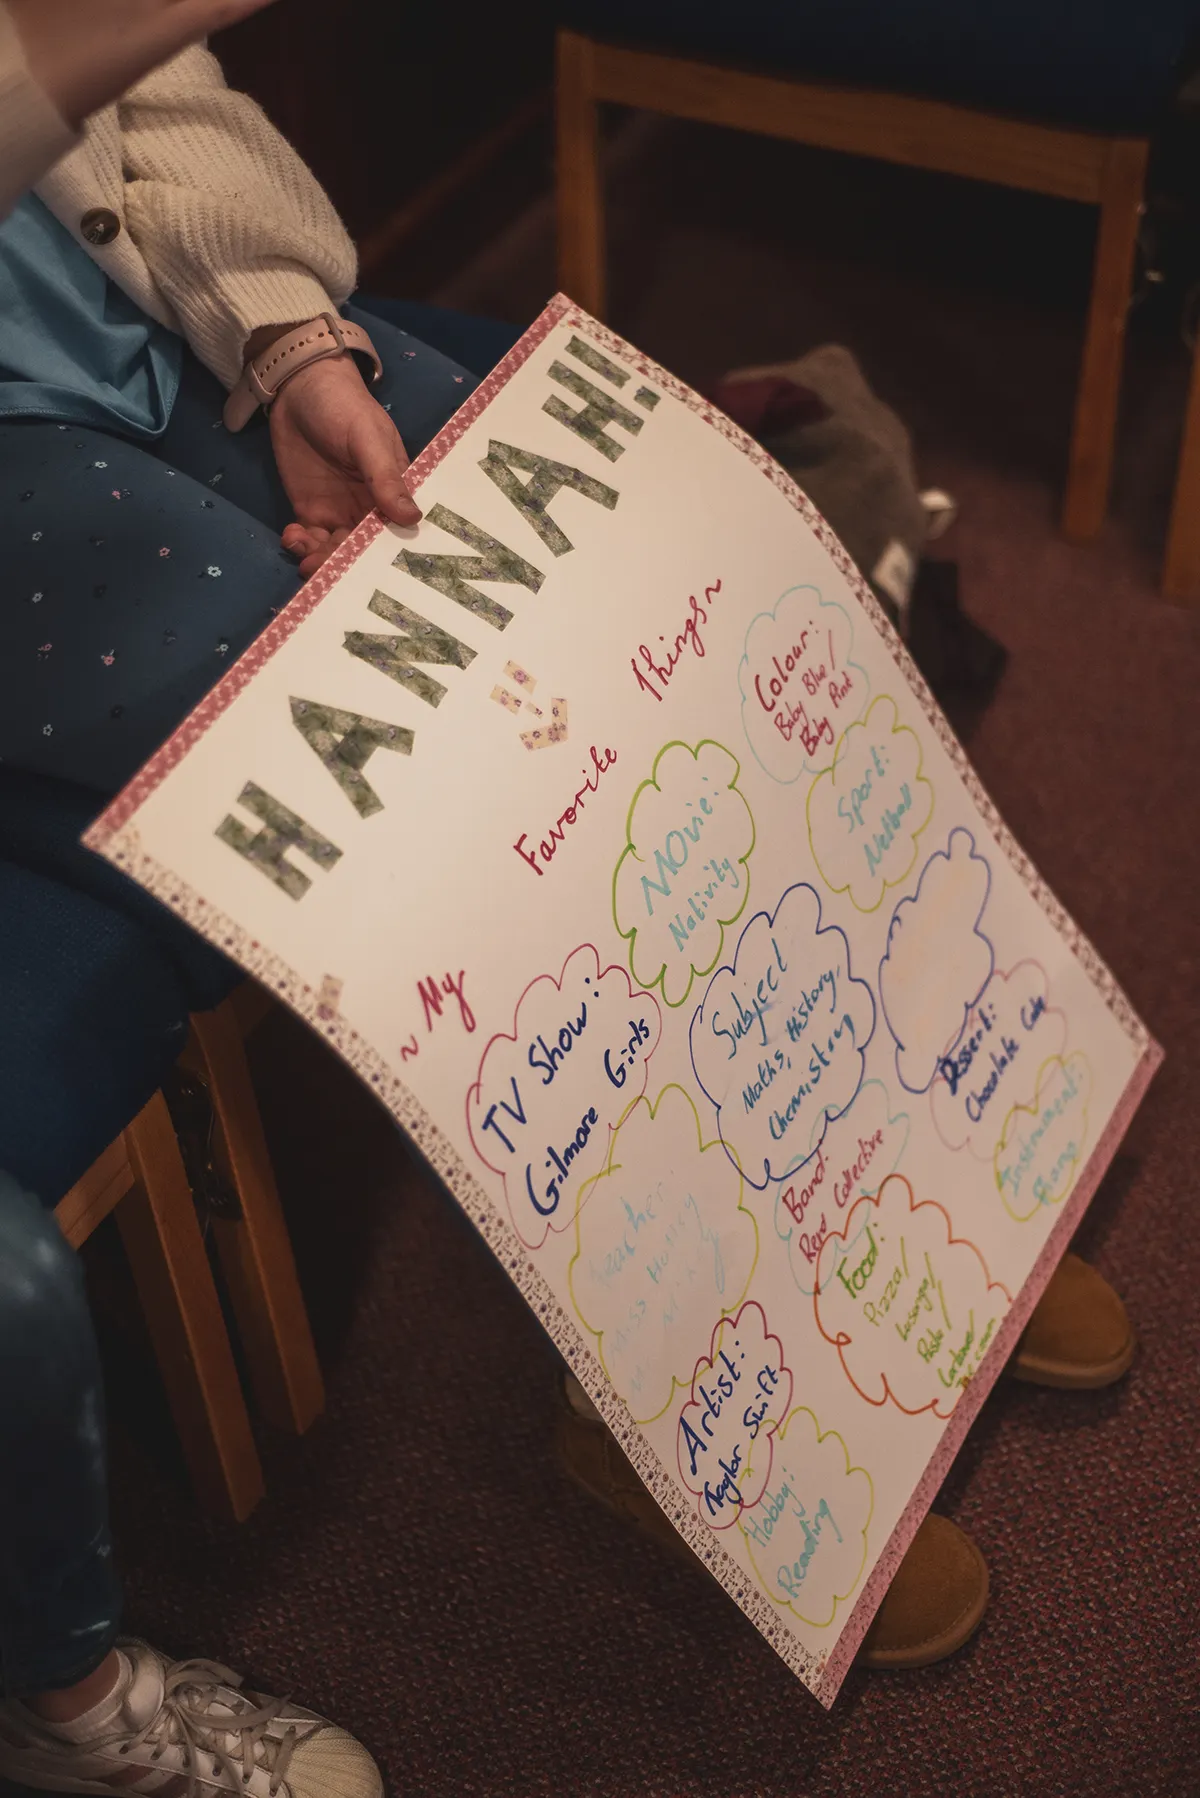 HANNAH!
~ My Favorite Things ~
TV Show:
Gilmore Girls
Movie:
Nativity
Colour:
Baby Blue/
Baby Pink
Sport:
Netball
Subject
Maths, History,
Chemistry
Dessert:
Chocolate Cake
Instrument:
Piano
Band:
Rend Collective
Teacher
Miss
Food:
Pizza/
Lasagne/
Pasta/
Artist:
Taylor Swift
Hobby:
Reading